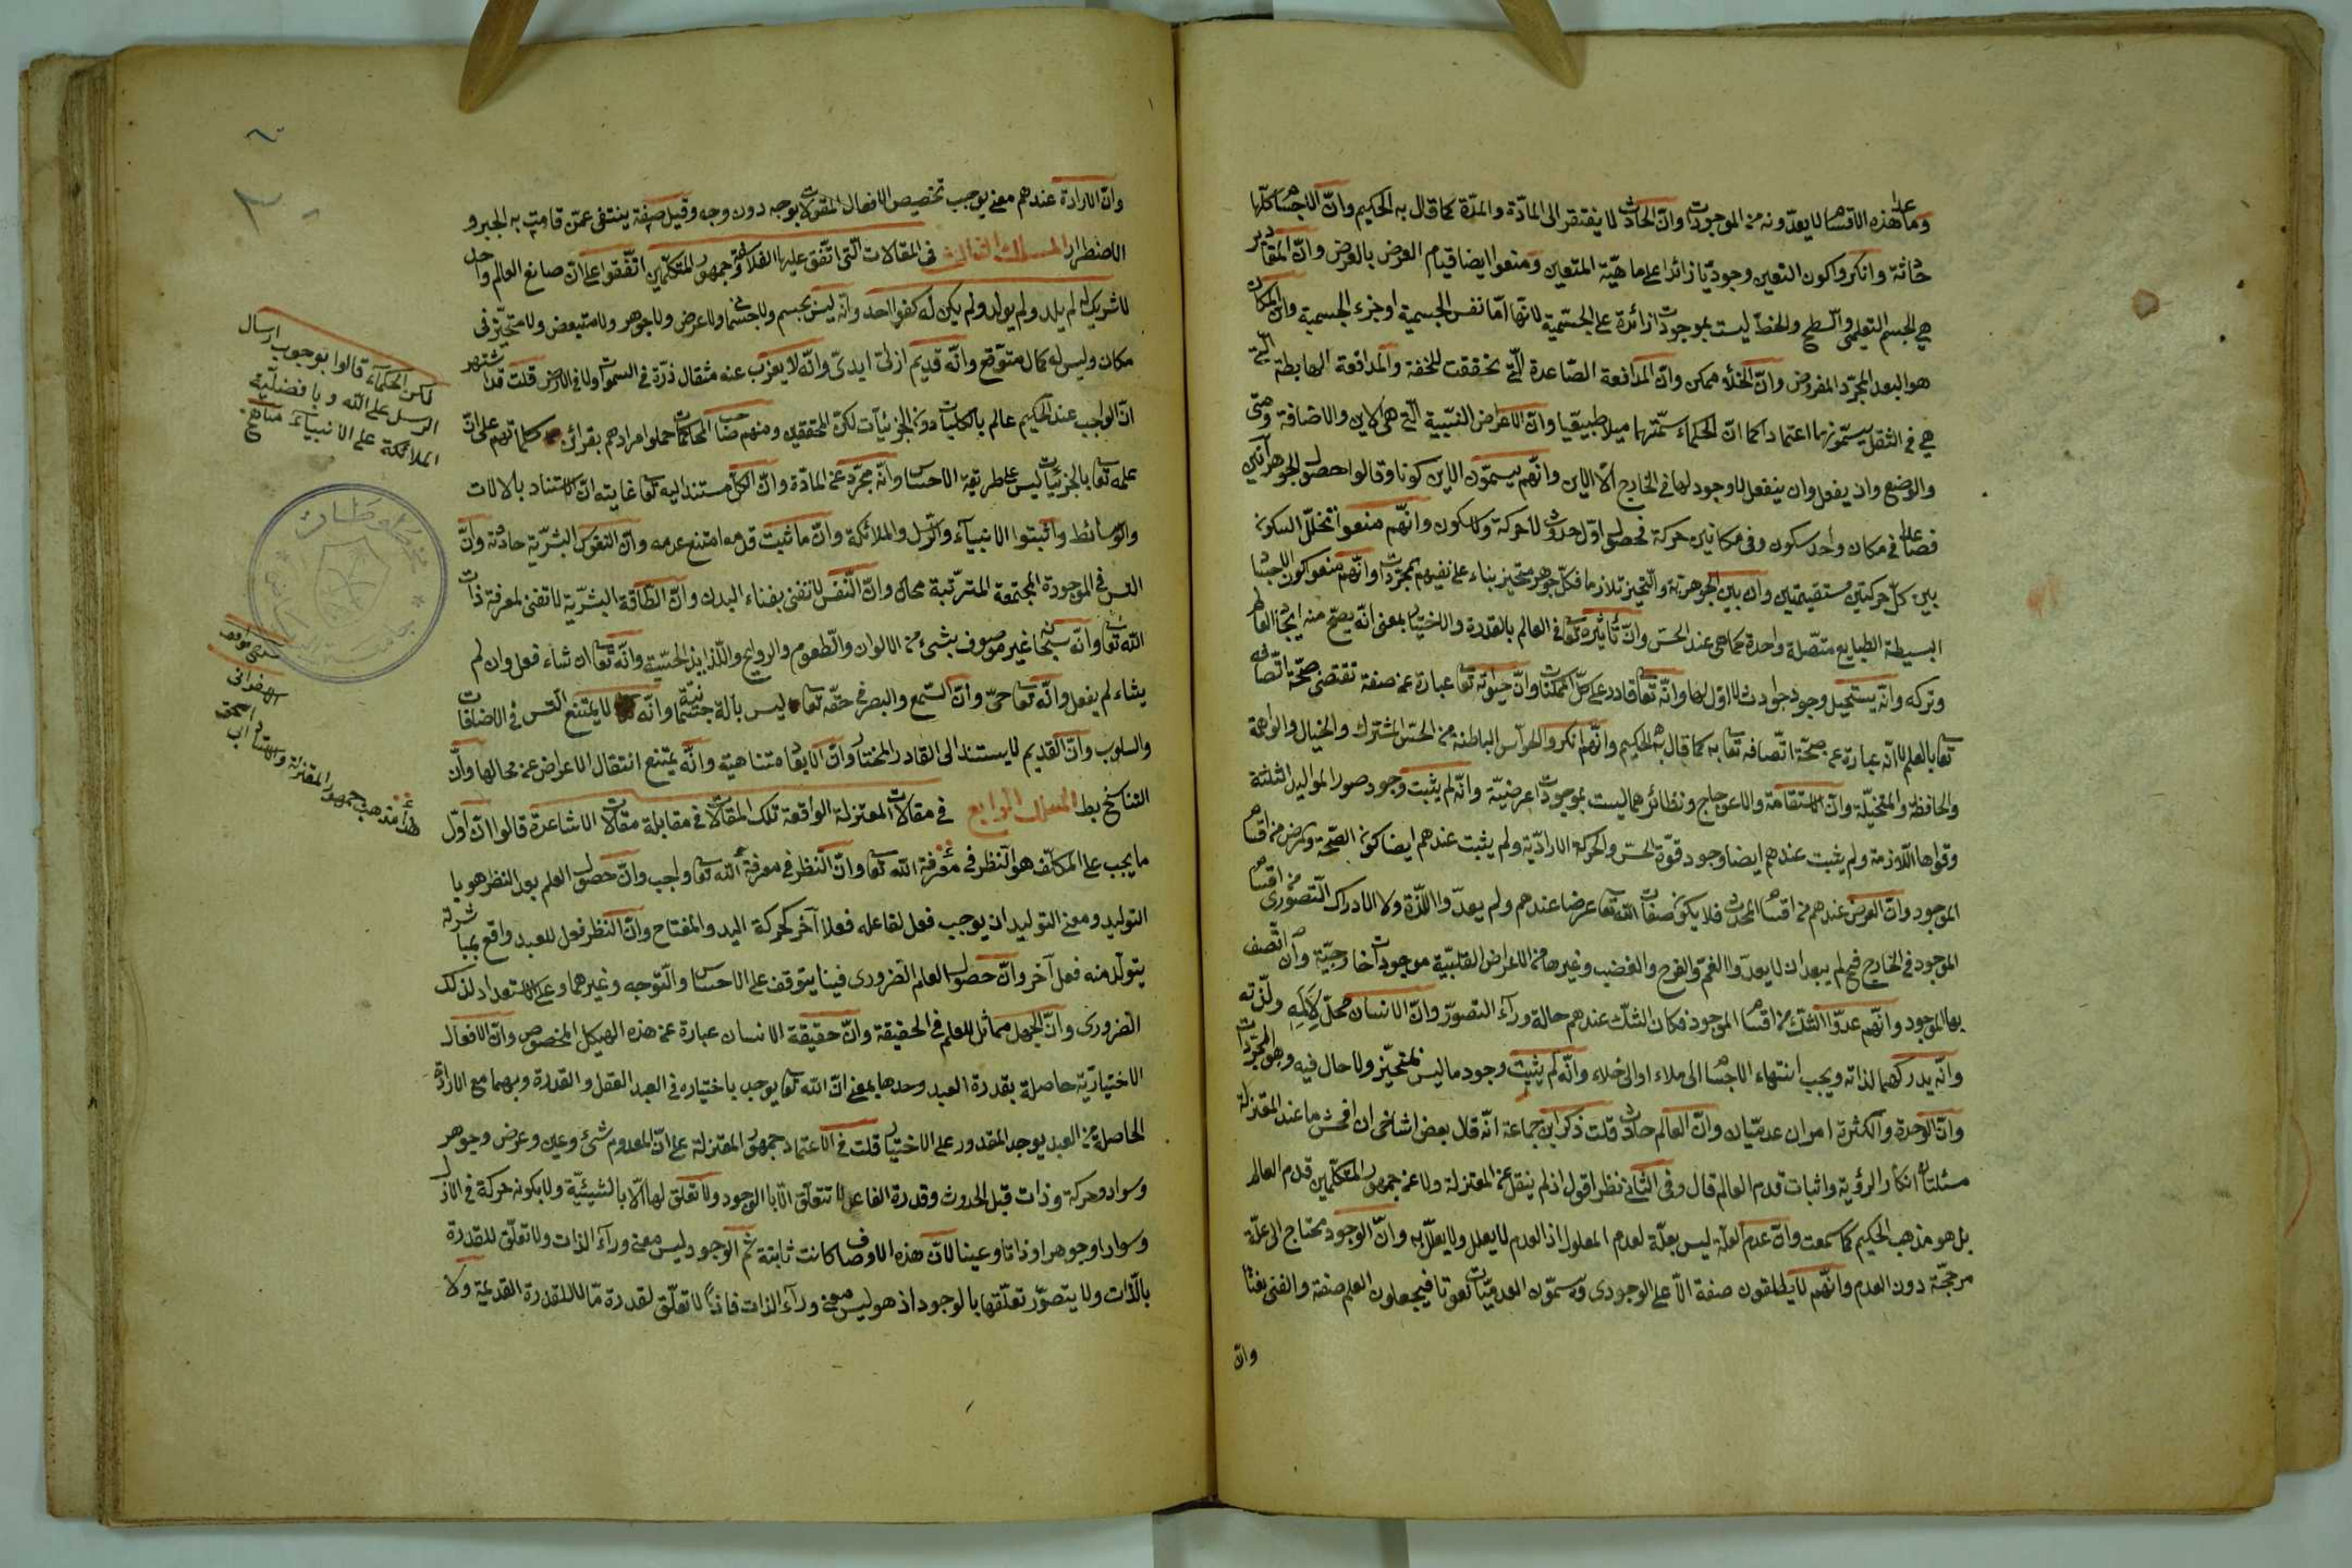 وما عدا هذه الاقسام لا يعدّونه من الموجودات وانّ الحادث لا يفتقر الى المادّة والمدّة كما قال به الحكيم وانّ الاجسام كلّها
حادثة وانكروا كون التعين وجوديّا زائدا على ماهيّة المتعين ومنعوا ايضا قيام العرض بالعرض وانّ المقادير
هي الجسم التعليمى والسطح والخطّ ليست بموجودات زائدة على الجسميّة لانّها امّا نفس الجسمية او جزء الجسمية وانّ المكان
هو البعد المجرّد المفروض وانّ الخلأ ممكن وانّ المدافعة الصّاعدة الّتى تحققت للخفة والمدافعة الهابطة الّتى
هي في الثقل يسمّونها اعتمادا كما انّ الحكماء سمّتهما ميلا طبيعيّا وانّ الاعراض النسبيّة الّتى هى الاين والاضافة ومتى
والوضع وان يفعل وان ينفعل لا وجود لها في الخارج الّا الاين وانّهم يسمّون الاين كونا وقالوا حصول الجوهر آنين
فصاعدا في مكان واحد سكون وفى مكانين حركة فحصوله اوّل حدوثه لا حركة ولا سكون وانّهم منعوا تخلّل السكون
بين كلّ حركتين مستقيمتين وانّ بين الجوهريّة والتحيز تلازما فكلّ جوهر متحيز بناء على نفيهم المجرّدات وانّهم منعوا كون الاجسام
البسيطة الطبايع متّصلة واحدة كما هى عند الحسّ وانّ تأثيره تعا في العالم بالقدرة والاختيار بمعنى انّه يصحّ منه ايجاد العالم
وتركه وانّه يستحيل وجود حوادث لا اوّل لها وانّه تعا قادر على كلّ الممكنات وانّ حيوته تعا عبارة عن صفة تقتضى صحّة اتّصافه
تعا بالعلم لا انّه عبارة عن صحّة اتّصافه تعا به كما قال به الحكيم وانّهم انكروا الحواسّ الباطنة من الحسّ المشترك والخيال والواهمة
والحافظة والمتخيّلة وانّ الاستقامة والاعوجاج ونظائرهما ليست بموجودات عرضيّة وانّه لم يثبت وجود صور المواليد الثلثة
وقواها اللازمة ولم يثبت عندهم ايضا وجود قوّة الحسّ والحركة الاراديّة ولم يثبت عندهم ايضا كون الصّحة والمرض من اقسام
الموجود وانّ العرض عندهم من اقسام المحدث فلا يكون صفات الله تعا عرضا عندهم ولم يعدّوا اللذّة ولا الادراك التصوّرى من اقسام
الموجود في الخارج فح لم يبعد ان لا يعدّوا الغمّ والفرح والغضب وغيرها من الاعراض القلبيّة موجودات خارجيّة وان اتّصف
بها الموجود وانّهم عدّوا الشكّ من اقسام الموجود فكان الشكّ عندهم حالة ورآء التصوّر وانّ الانسان محلّ لالمه ولذّته
وانّه يدركهما لذاته ويجب انتهاء الاجسام الى ملاء او الى خلاء وانّه لم يثبت وجود ما ليس بمتحيّز ولا حال فيه وهو المجرّدات
وانّ الوحدة والكثرة امران عدميّان وانّ العالم حادث قلت ذكر ابن جماعة انّه قال بعض اشياخى ان افحش ما عند المعتزلة
مسئلتان انكار الرؤية واثبات قدم العالم قال وفى الثانى نظر اقول اذ لم ينقل عن المعتزلة ولا عن جمهور المتكلّمين قدم العالم
بل هو مذهب الحكيم كما سمعت وانّ عدم العلّة ليس بعلّة لعدم المعلول اذ العدم لا يعلل ولا يعلّل به وانّ الوجود محتاج الى علّة
مرجّحة دون العدم وانّهم لا يطلقون صفة الّا على الوجودى ويسمّون العدميّات نعوتا فيجعلون العلم صفة والغنى نعتا
وانّ
وانّ الارادة عندهم معنى يوجب تخصيص الافعال المقدورات بوجه دون وجه وقيل صفة ينتفى عمّن قامت به الجبر و
الاضطرار المسلك الثالث في المقالات الّتى اتّفق عليها الفلاسفة وجمهور المتكلّمين اتّفقوا على انّ صانع العالم واحد
لا شريك له لم يلد ولم يولد ولم يكن له كفوا احد وانّه ليس بجسم ولا جسمانى ولا عرض ولا جوهر ولا متبعض ولا متحيّز في
مكان وليس له كمال متوقع وانّه قديم ازلىّ ابدىّ وانّه لا يعزب عنه مثقال ذرّة في السموات ولا في الارض قلت قد اشتهر
انّ الواجب عند الحكيم عالم بالكليات دون الجزئيّات لكنّ المحققين ومنهم صاحب المحاكمات حملوا مرادهم بقرائن كلماتهم على انّ
علمه تعا بالجزئيّات ليس على طريقة الاحساس وانّه مجرّد عن المادّة وانّ الكلّ مستند اليه تعا غايته انّ الاستناد بالالات
والوسائط واثبتوا الانبيآء والرّسل والملائكة وانّ ما ثبت قدمه امتنع عدمه وانّ النفوس البشريّة حادثة وانّ
التس في الموجودة المجتمعة المترتّبة محال وانّ النّفس لا تفنى بفناء البدن وانّ الطّاقة البشريّة لا تفى لمعرفة ذات
الله تعا وانّه سبحانه غير موصوف بشئ من الالوان والطّعوم والروايح واللّذايذ الحسّية وانّه تعا ان شاء فعل وان لم
يشاء لم يفعل وانّه تعا حىّ وانّ السّمع والبصر في حقّه تعا ليس بآلة جسمانيّة وانّه لا يمتنع التس في الاضافات
والسلوب وانّ القديم لا يستند الى القادر المختار وانّ الابعاد متناهية وانّه يمتنع انتقال الاعراض عن محالها وانّ
التناسخ بط المسلك الرابع في مقالات المعتزلة الواقعة تلك المقالات في مقابلة مقالات الاشاعرة قالوا انّ اوّل
ما يجب على المكلّف هو النظر في معرفة الله تعا وانّ النظر في معرفة الله تعا واجب وانّ حصول العلم بعد النظر هو با
التوليد ومعنى التوليد ان يوجب فعل لفاعله فعلا آخر كحركة اليد والمفتاح وانّ النظر فعل للعبد واقع بمباشرته
يتولّد منه فعل آخر وانّ حصول العلم الضرورى فينا يتوقف على الاحساس والتّوجه وغيرهما وعلى الاستعداد لذلك
الضرورى وانّ الجهل مماثل للعلم في الحقيقة وانّ حقيقة الانسان عبارة عن هذه الهيكل المخصوص وانّ الافعال
الاختياريّة حاصلة بقدرة العبد وحدها بمعنى انّ الله تعا يوجب باختياره في العبد العقل والقدرة وبهما مع الارادة
الحاصلة من العبد يوجد المقدور على الاختيار قلت في الاعتماد جمهور المعتزلة على انّ المعدوم شئ وعين وعرض وجوهر
وسواد وحركة وذات قبل الحدوث وقدرة الفاعل لا تتعلّق الّا با الوجود ولا تعلق لها الّا بالشيئيّة ولا بكونه حركة في الازل
وسوادا وجوهرا وذاتا وعينا لانّ هذه الاوصاف كانت ثابتة ثمّ الوجود ليس معنى ورآء الذات ولا تعلّق للقدرة
بالذّات ولا يتصوّر تعلّقها بالوجود اذ هو ليس معنى ورآء الذات فاذًا لا تعلّق لقدرة مّا لا للقدرة القديمة ولا
لكن الحكمآء قالوا بوجوب ارسال
الرسل على الله و با فضليّة
الملائكة على الانبيآء
هذا مذهب جمهور المعتزلة